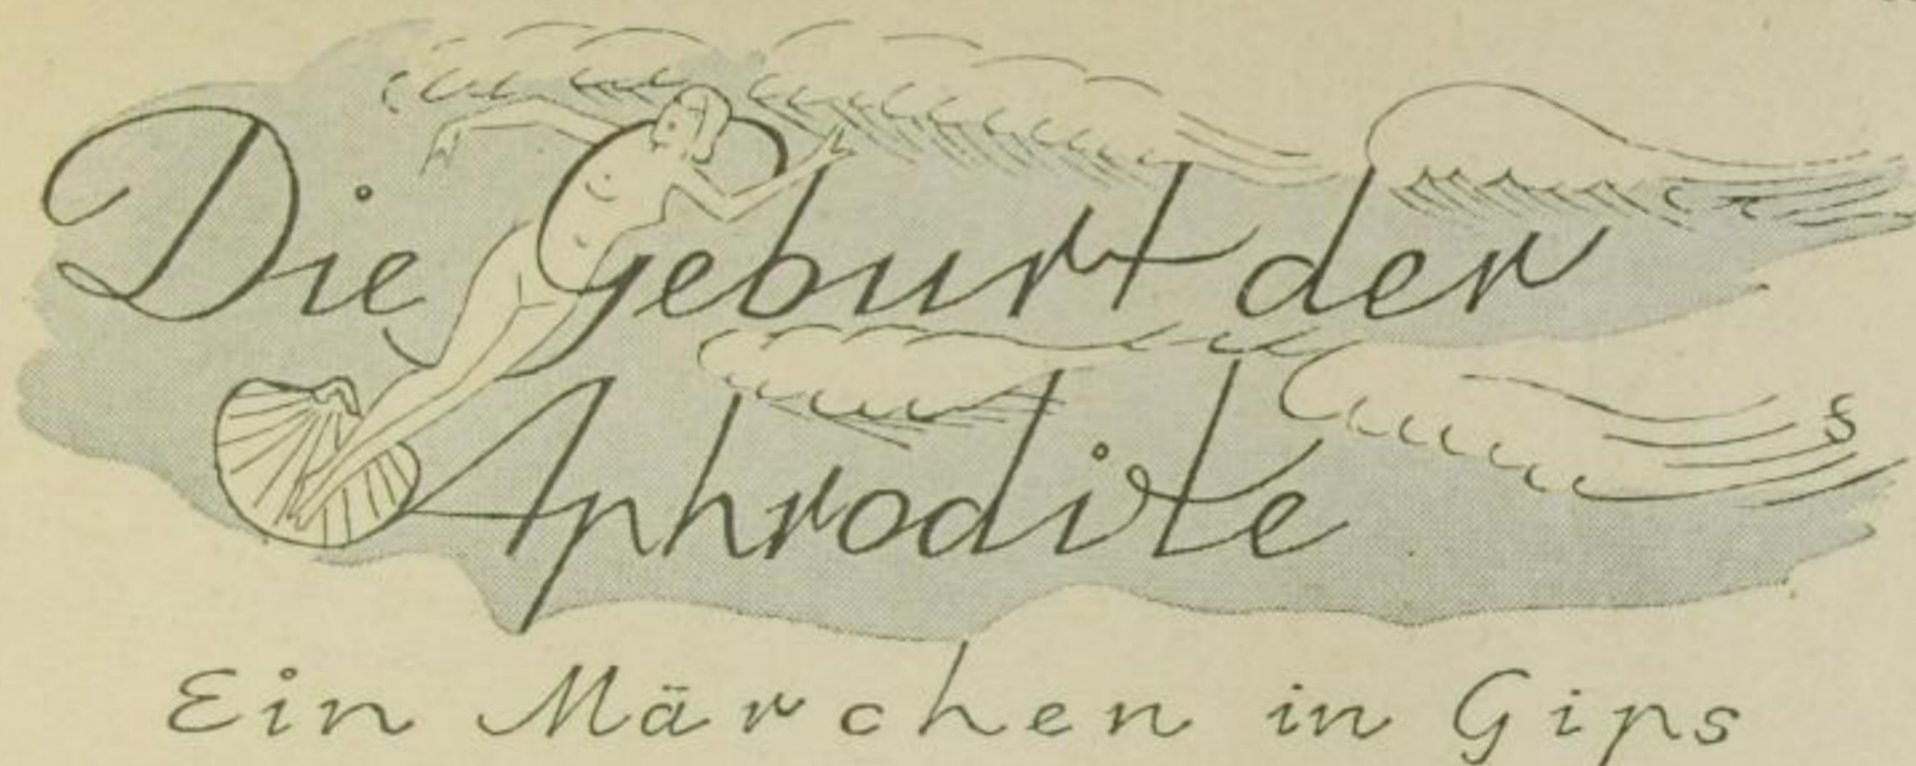 Die Geburt der
Aphrodite
s
Ein Märchen in Gips